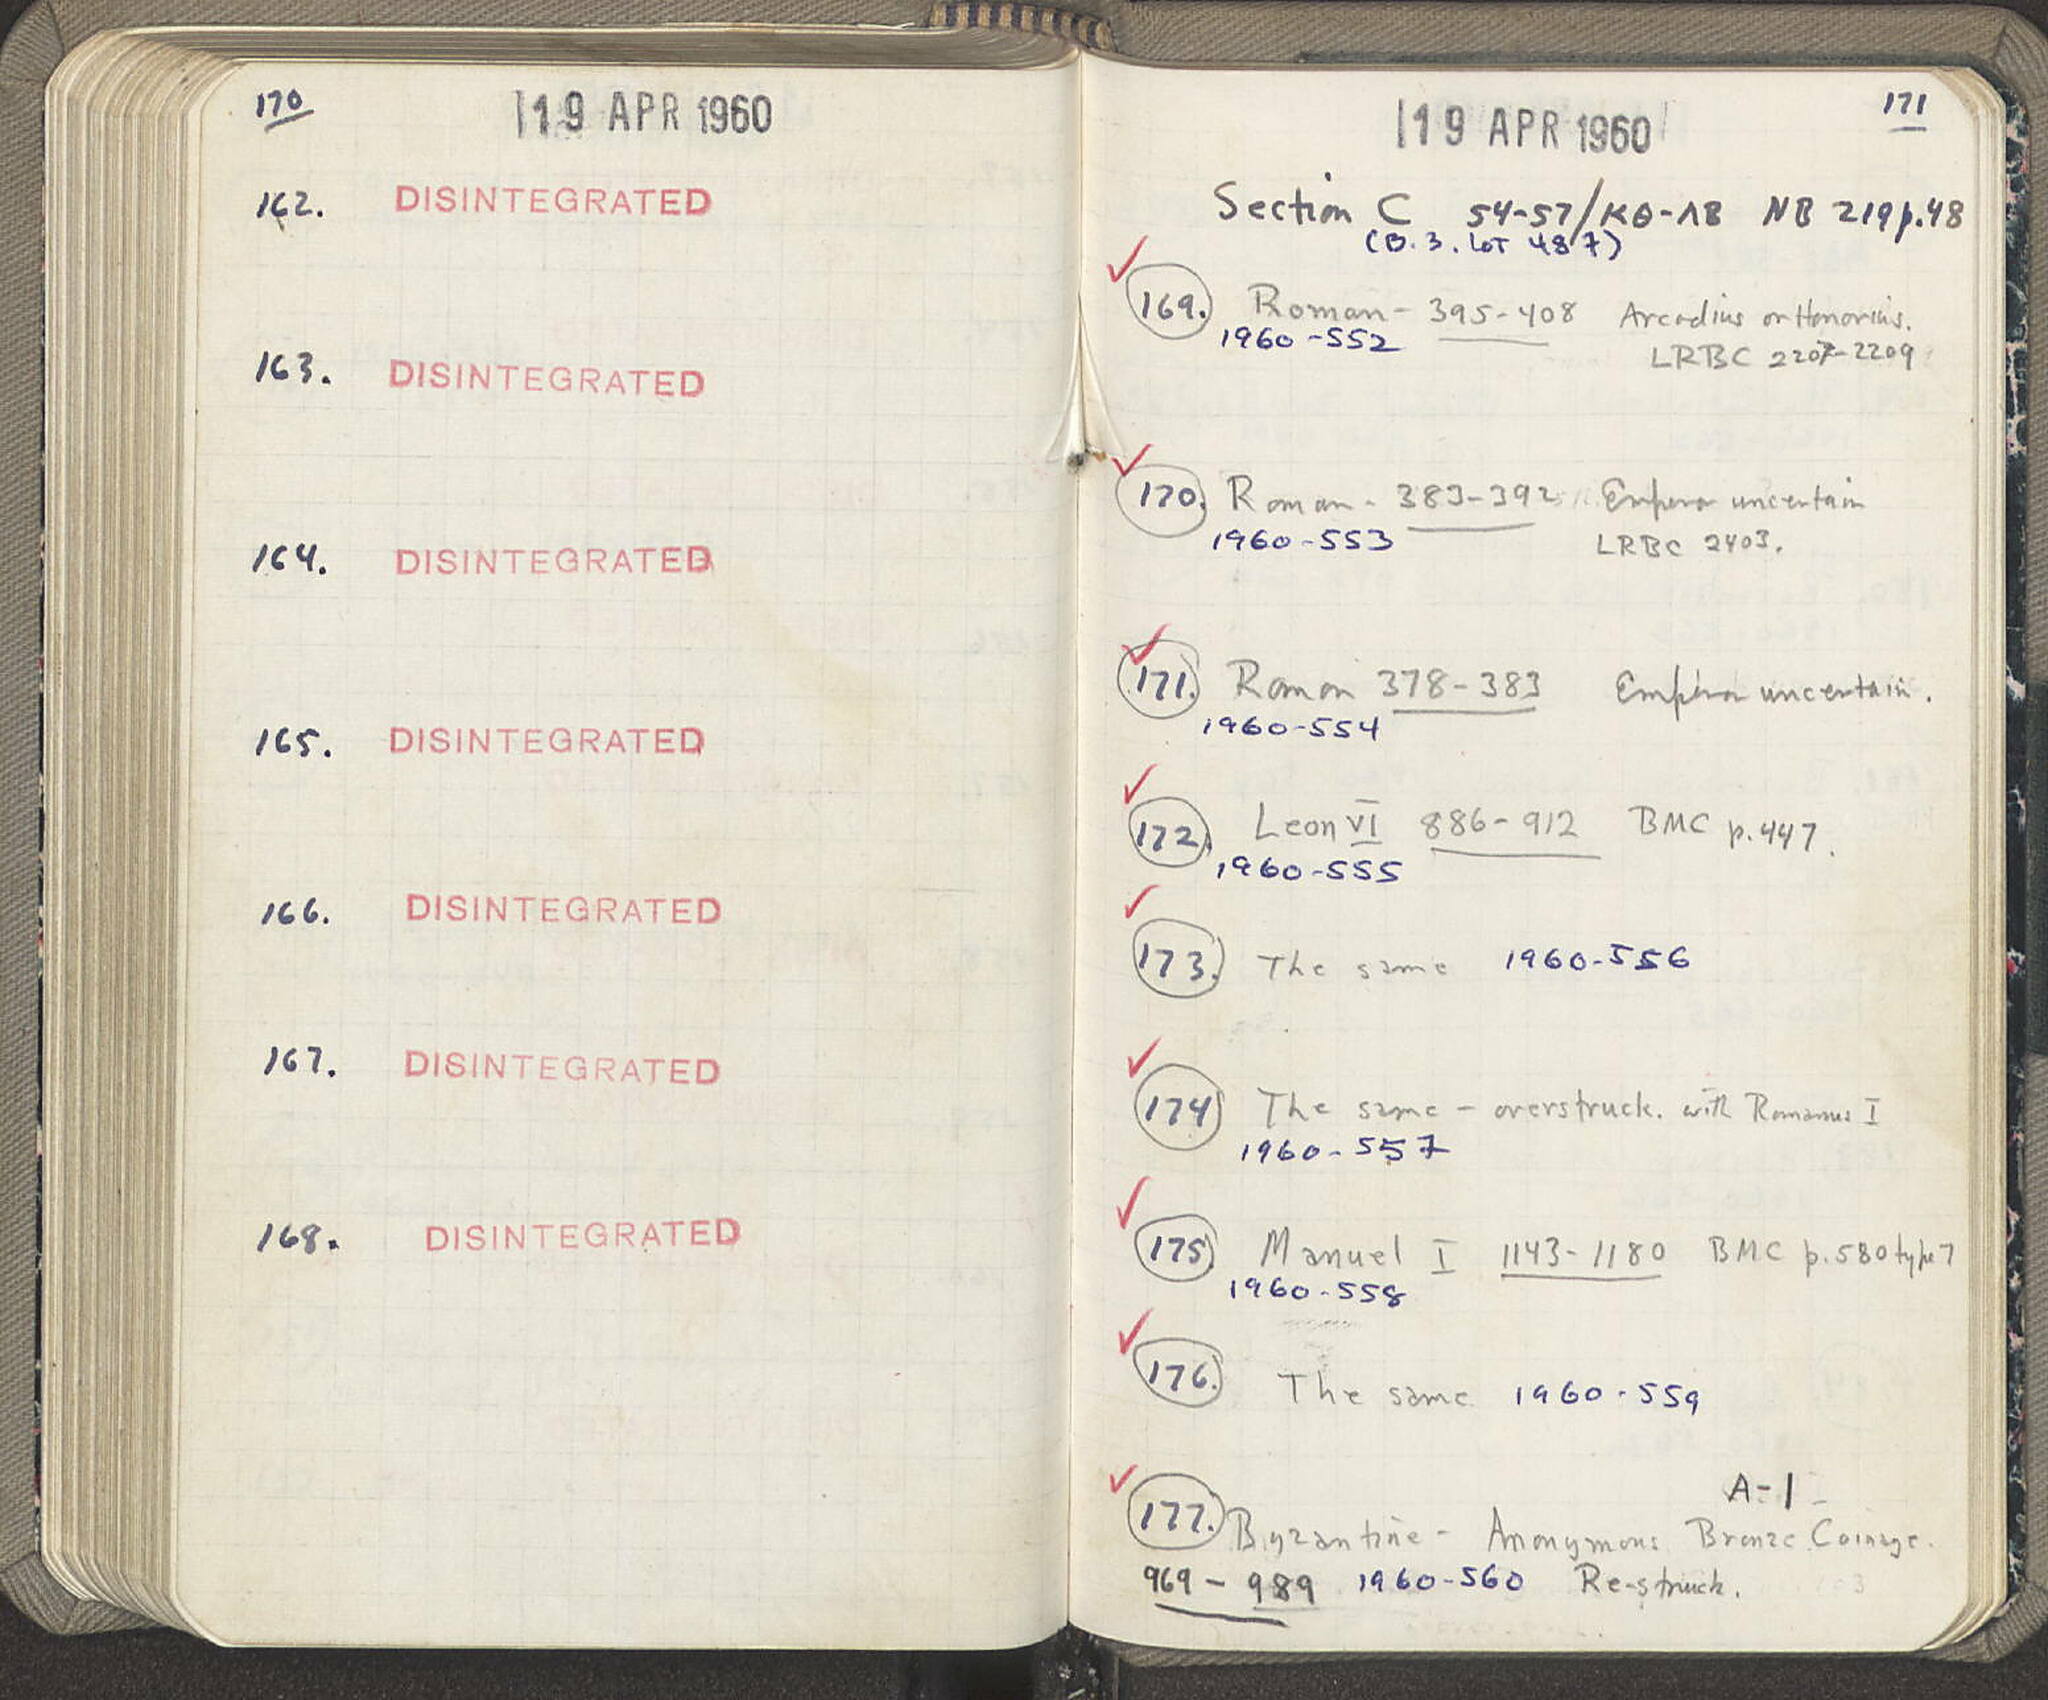 170
19 APR 1960
162. DISINTEGRATED
163. DISINTEGRATED
164. DISINTEGRATED
165. DISINTEGRATED
166. DISINTEGRATED
167. DISINTEGRATED
168. DISINTEGRATED
171
19 APR 1960
Section C 54-57/ΚΘ-ΛΒ NB 219 p.48
(B.3. Lot 487)
169. Roman - 395-408 Arcadius or Honorius.
1960-552 LRBC 2207-2209
170. Roman - 383-392 Emperor uncertain
1960-553 LRBC 2403.
171. Roman 378-383 Emperor uncertain.
1960-554
172. Leon VI 886-912 BMC p.447.
1960-555
173. The same 1960-556
174 The same - overstruck. with Romanus I
1960-557
175. Manuel I 1143-1180 BMC p.580 type 7
1960-558
176. The same 1960-559
A-1
177. Byzantine - Anonymous Bronze Coinage.
969-989 1960-560 Re-struck.